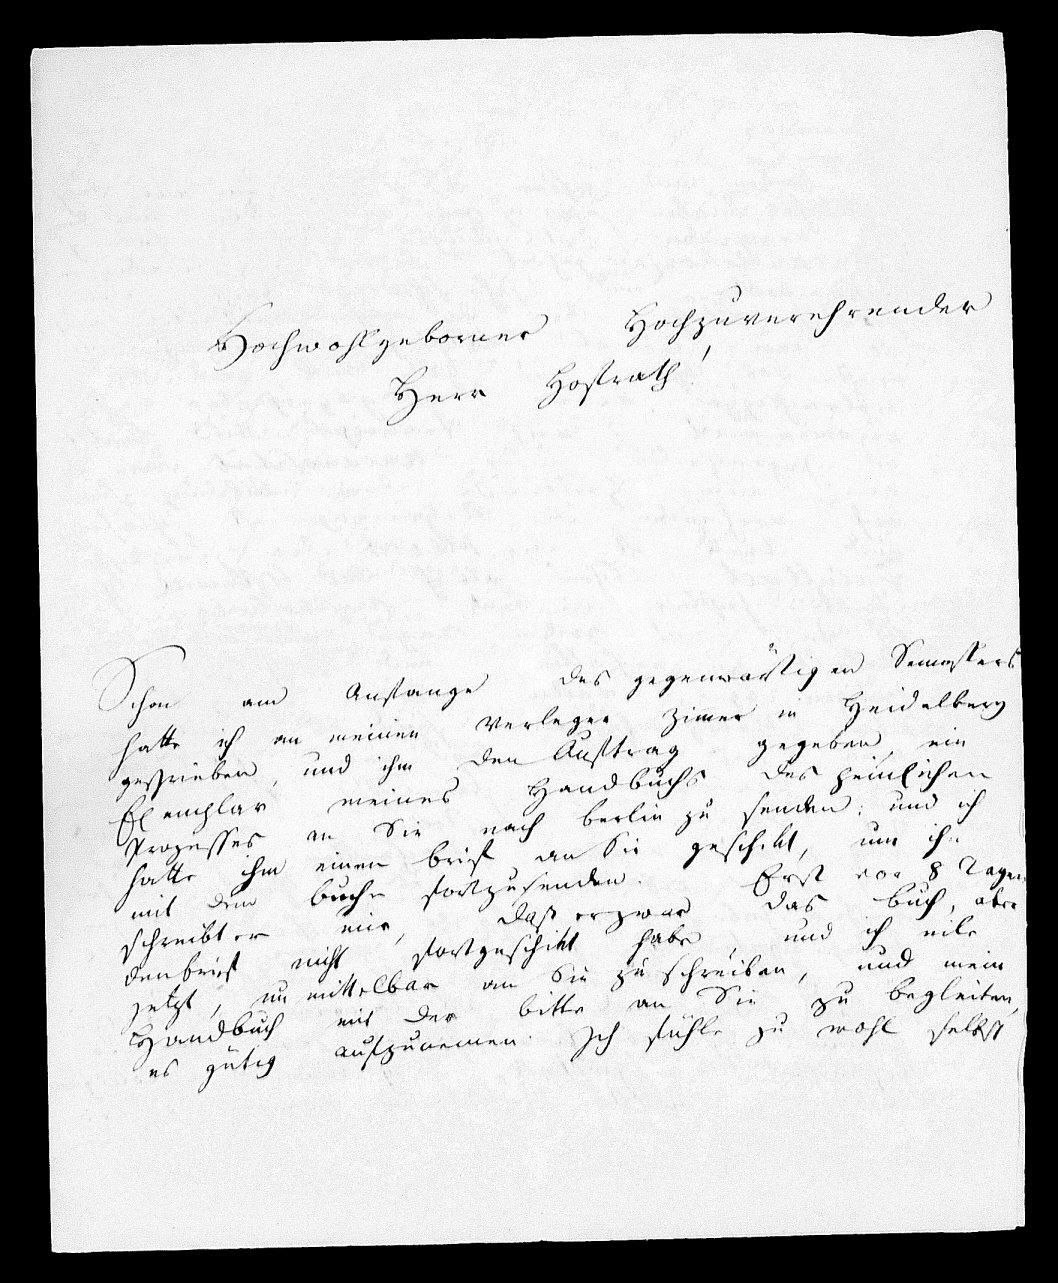 Hochwohlgeborner Hochzuverehrender
Herr Hofrath!
Schon am Anfange des gegenwärtigen Semesters
hatte ich an meinen Verleger Zimer in Heidelberg
geschrieben, und ihm den Auftrag gegeben, ein
Exemplar meines Handbuchs des peinlichen
Prozesses an Sie nach berlin zu senden: und ich
hatte ihm einen brief an Sie geschikt, um ihn
mit dem buche fortzusenden. Erst vor 8 Tagen
schreibt er mir, daß er zwar das buch, aber
den brief nicht fortgeschikt habe und ich eile
jetzt, unmittelbar an Sie zu schreiben, und mein
Handbuch mit der bitte an Sie zu begleiten,
es gütig aufzunemen. Ich fühle zu wohl selbst